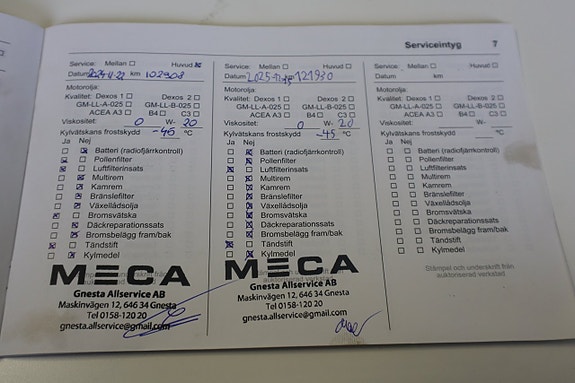 Serviceintyg 7
Service: Mellan Huvud
Datum 2024-11-22 km 102908
Motorolja:
Kvalitet: Dexos 1 Dexos 2
GM-LL-A-025 GM-LL-B-025
ACEA A3 B4 C3
Viskositet: 0 W- 20
Kylvätskans frostskydd -45 °C
Ja Nej
Batteri (radiofjärrkontroll)
Pollenfilter
Luftfilterinsats
Multirem
Kamrem
Bränslefilter
Växellådsolja
Bromsvätska
Däckreparationssats
Bromsbelägg fram/bak
Tändstift
Kylmedel
MECA
Gnesta Allservice AB
Maskinvägen 12, 646 34 Gnesta
Tel 0158-120 20
gnesta.allservice@gmail.com
Service: Mellan Huvud
Datum 121930
Motorolja:
Kvalitet: Dexos 1 Dexos 2
GM-LL-A-025 GM-LL-B-025
ACEA A3 B4 C3
Viskositet: 0 W- 20
Kylvätskans frostskydd -45 °C
Ja Nej
Batteri (radiofjärrkontroll)
Pollenfilter
Luftfilterinsats
Multirem
Kamrem
Bränslefilter
Växellådsolja
Bromsvätska
Däckreparationssats
Bromsbelägg fram/bak
Tändstift
Kylmedel
MECA
Gnesta Allservice AB
Maskinvägen 12, 646 34 Gnesta
Tel 0158-120 20
gnesta.allservice@gmail.com
Service: Mellan Huvud
Datum km
Motorolja:
Kvalitet: Dexos 1 Dexos 2
GM-LL-A-025 GM-LL-B-025
ACEA A3 B4 C3
Viskositet: W-
Kylvätskans frostskydd °C
Ja Nej
Batteri (radiofjärrkontroll)
Pollenfilter
Luftfilterinsats
Multirem
Kamrem
Bränslefilter
Växellådsolja
Bromsvätska
Däckreparationssats
Bromsbelägg fram/bak
Tändstift
Kylmedel
Stämpel och underskrift från
auktoriserad verkstad